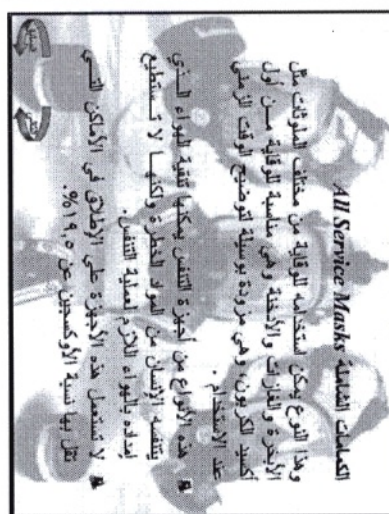 الكمامات الشاملة All Service Masks
وهذا النوع يمكن استخدامه للوقاية من مختلف الملوثات مثل
الأبخرة والغازات والأدخنة وهي مناسبة للوقاية من أول
أكسيد الكربون، وهي مزودة بوسيلة لتوضيح الوقت الزمني
عند الاستخدام .
هذه الأنواع من أجهزة التنفس يمكنها تنقية الهواء الذي
يتنفسه الإنسان من المواد الخطرة ولكنها لا تستطيع
إمداده بالهواء اللازم لعملية التنفس.
لا تستعمل هذه الأجهزة على الإطلاق في الأماكن التي
تقل بها نسبة الأوكسجين عن ١٩,٥%.